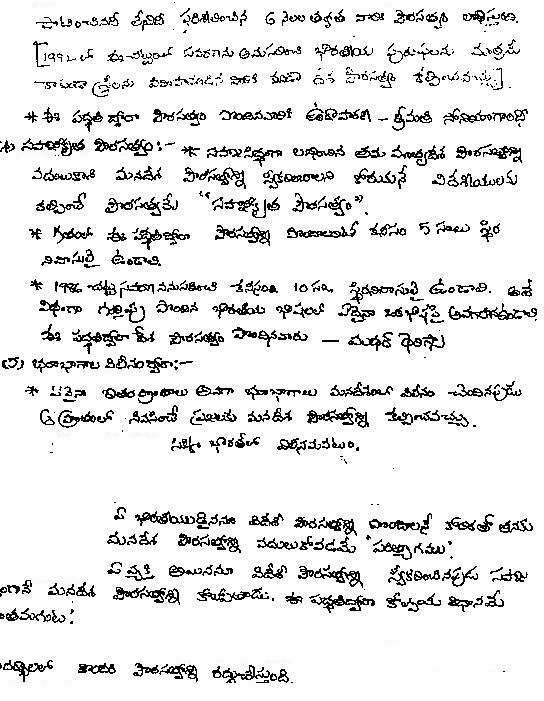 పాటించినదీ లేనిదీ పరిశీలించిన 6 నెలల తర్వాత వారికి పౌరసత్వం లభిస్తుంది.
[1992లో ఈ చట్టంలో సవరణను అనుసరించి భారతీయ పురుషులను మాత్రమే
కాకుండా స్త్రీలను వివాహమాడిన వారికి కూడా ఈ దేశ పౌరసత్వం కల్పించవచ్చు].
* ఈ పద్ధతి ద్వారా పౌరసత్వం పొందినవారికి ఉదాహరణ - శ్రీమతి సోనియాగాంధీ
సహజీకృత పౌరసత్వం :- * సహజసిద్ధంగా లభించిన తమ మాతృదేశ పౌరసత్వాన్ని
వదులుకొని మనదేశ పౌరసత్వాన్ని స్వీకరించాలని కోరుకునే విదేశీయులకు
కల్పించే పౌరసత్వమే "సహజీకృత పౌరసత్వం".
* గతంలో ఈ పద్ధతిద్వారా పౌరసత్వాన్ని పొందాలంటే కనీసం 5 సంలు స్థిర
నివాసులై ఉండాలి.
* 1986 చట్ట సవరణననుసరించి కనీసం 10 సం. స్థిరనివాసులై ఉండాలి. అదే
విధంగా గుర్తింపు పొందిన భారతీయ భాషలలో ఏదైనా ఒక భాషపై అవగాహన ఉండాలి
ఈ పద్ధతిద్వారా దేశ పౌరసత్వం పొందినవారు - మదర్ థెరిస్సా
భూభాగాల విలీనంద్వారా :-
* ఏదైనా ఇతర ప్రాంతాలు అనగా భూభాగాలు మనదేశంలో విలీనం చెందినపుడు
ఆ ప్రాంతంలో నివసించే ప్రజలకు మనదేశ పౌరసత్వాన్ని కల్పించవచ్చు.
సిక్కిం భారత్‌లో విలీనమవటం.
ఏ భారతీయుడైనను విదేశీ పౌరసత్వాన్ని పొందాలనే కోరికతో తనకు
మనదేశ పౌరసత్వాన్ని వదులుకోవడమే 'పరిత్యాగము'.
ఏ వ్యక్తి అయినను విదేశీ పౌరసత్వాన్ని స్వీకరించినపుడు సహజ
గానే మనదేశ పౌరసత్వాన్ని కోల్పోతాడు. ఈ పద్ధతిద్వారా కోల్పోయే విధానమే
కాందరి పౌరసత్వాన్ని రద్దుచేస్తుంది.